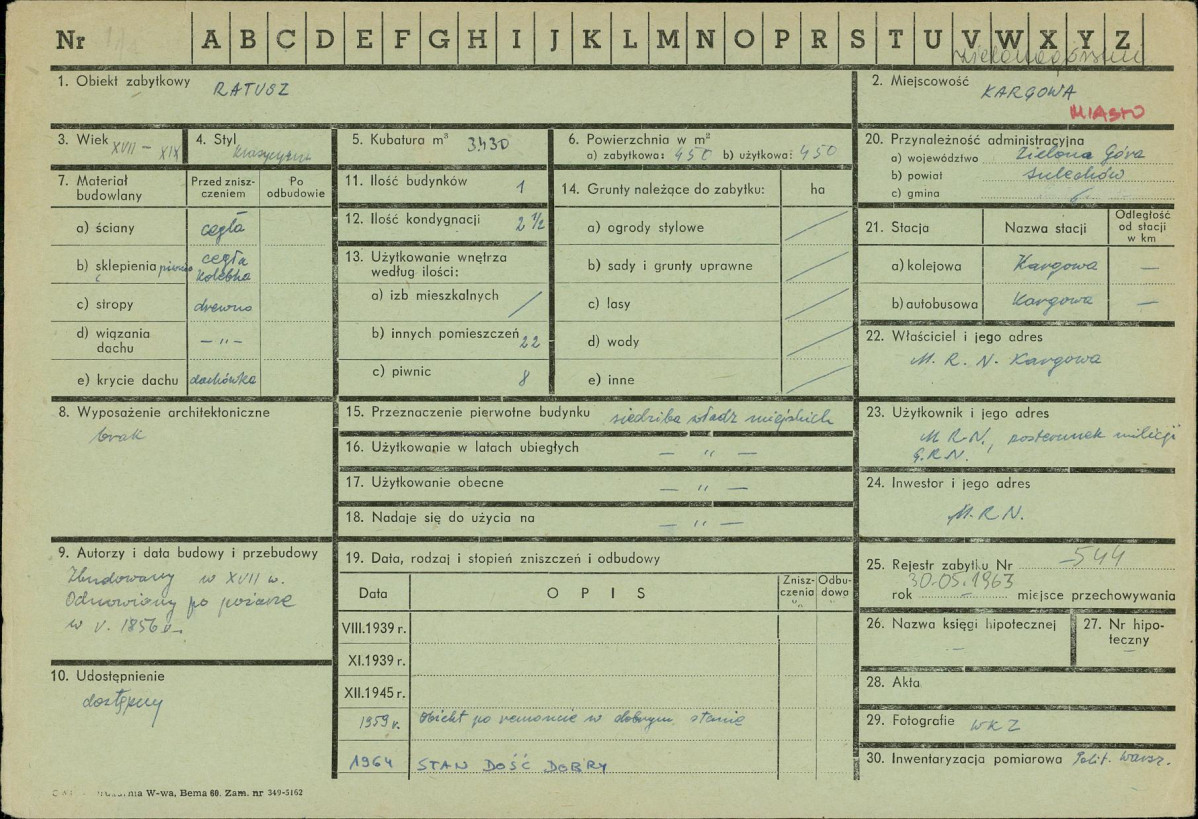 Nr A B C D E F G H I J K L M N O P R S T U V W X Y Z
1. Obiekt zabytkowy RATUSZ
2. Miejscowość KARGOWA
MIASTO
3. Wiek XVII – XIX
4. Styl
5. Kubatura m³ 3430
6. Powierzchnia w m²
a) zabytkowa: 450 b) użytkowa: 450
7. Materiał budowlany
Przed znisz-
czeniem
Po
odbudowie
a) ściany cegła
b) sklepienia piwnic cegła
kolebka
c) stropy drewno
d) wiązania
dachu — „ —
e) krycie dachu dachówka
8. Wyposażenie architektoniczne
brak
9. Autorzy i data budowy i przebudowy
Zbudowany w XVII w.
Odnowiony po pożarze
w r. 1856
10. Udostępnienie
dostępny
11. Ilość budynków 1
12. Ilość kondygnacji 2 1/2
13. Użytkowanie wnętrza
według ilości:
a) izb mieszkalnych /
b) innych pomieszczeń 22
c) piwnic 8
14. Grunty należące do zabytku: ha
a) ogrody stylowe
b) sady i grunty uprawne
c) lasy
d) wody
e) inne
15. Przeznaczenie pierwotne budynku siedziba władz miejskich
16. Użytkowanie w latach ubiegłych — „ —
17. Użytkowanie obecne — „ —
18. Nadaje się do użycia na — „ —
19. Data, rodzaj i stopień zniszczeń i odbudowy
Data OPIS Znisz-
czenia
"/"
Odbu-
dowa
VIII.1939 r.
XI.1939 r.
XII.1945 r.
1959 r. Obiekt po remoncie w dobrym stanie
1964 STAN DOŚĆ DOBRY
20. Przynależność administracyjna
a) województwo Zielona Góra
b) powiat Sulechów
c) gmina
21. Stacja Nazwa stacji Odległość
od stacji
w km
a) kolejowa Kargowa —
b) autobusowa Kargowa —
22. Właściciel i jego adres
M. R. N. Kargowa
23. Użytkownik i jego adres
M R.N., posterunek milicji
G.R.N.
24. Inwestor i jego adres
M. R N.
25. Rejestr zabytku Nr 544
30.05.1963
rok miejsce przechowywania
26. Nazwa księgi hipotecznej —
27. Nr hipo-
teczny —
28. Akta
29. Fotografie WKZ
30. Inwentaryzacja pomiarowa Polit. Warsz.
W-wa, Bema 60. Zam. nr 349-5162